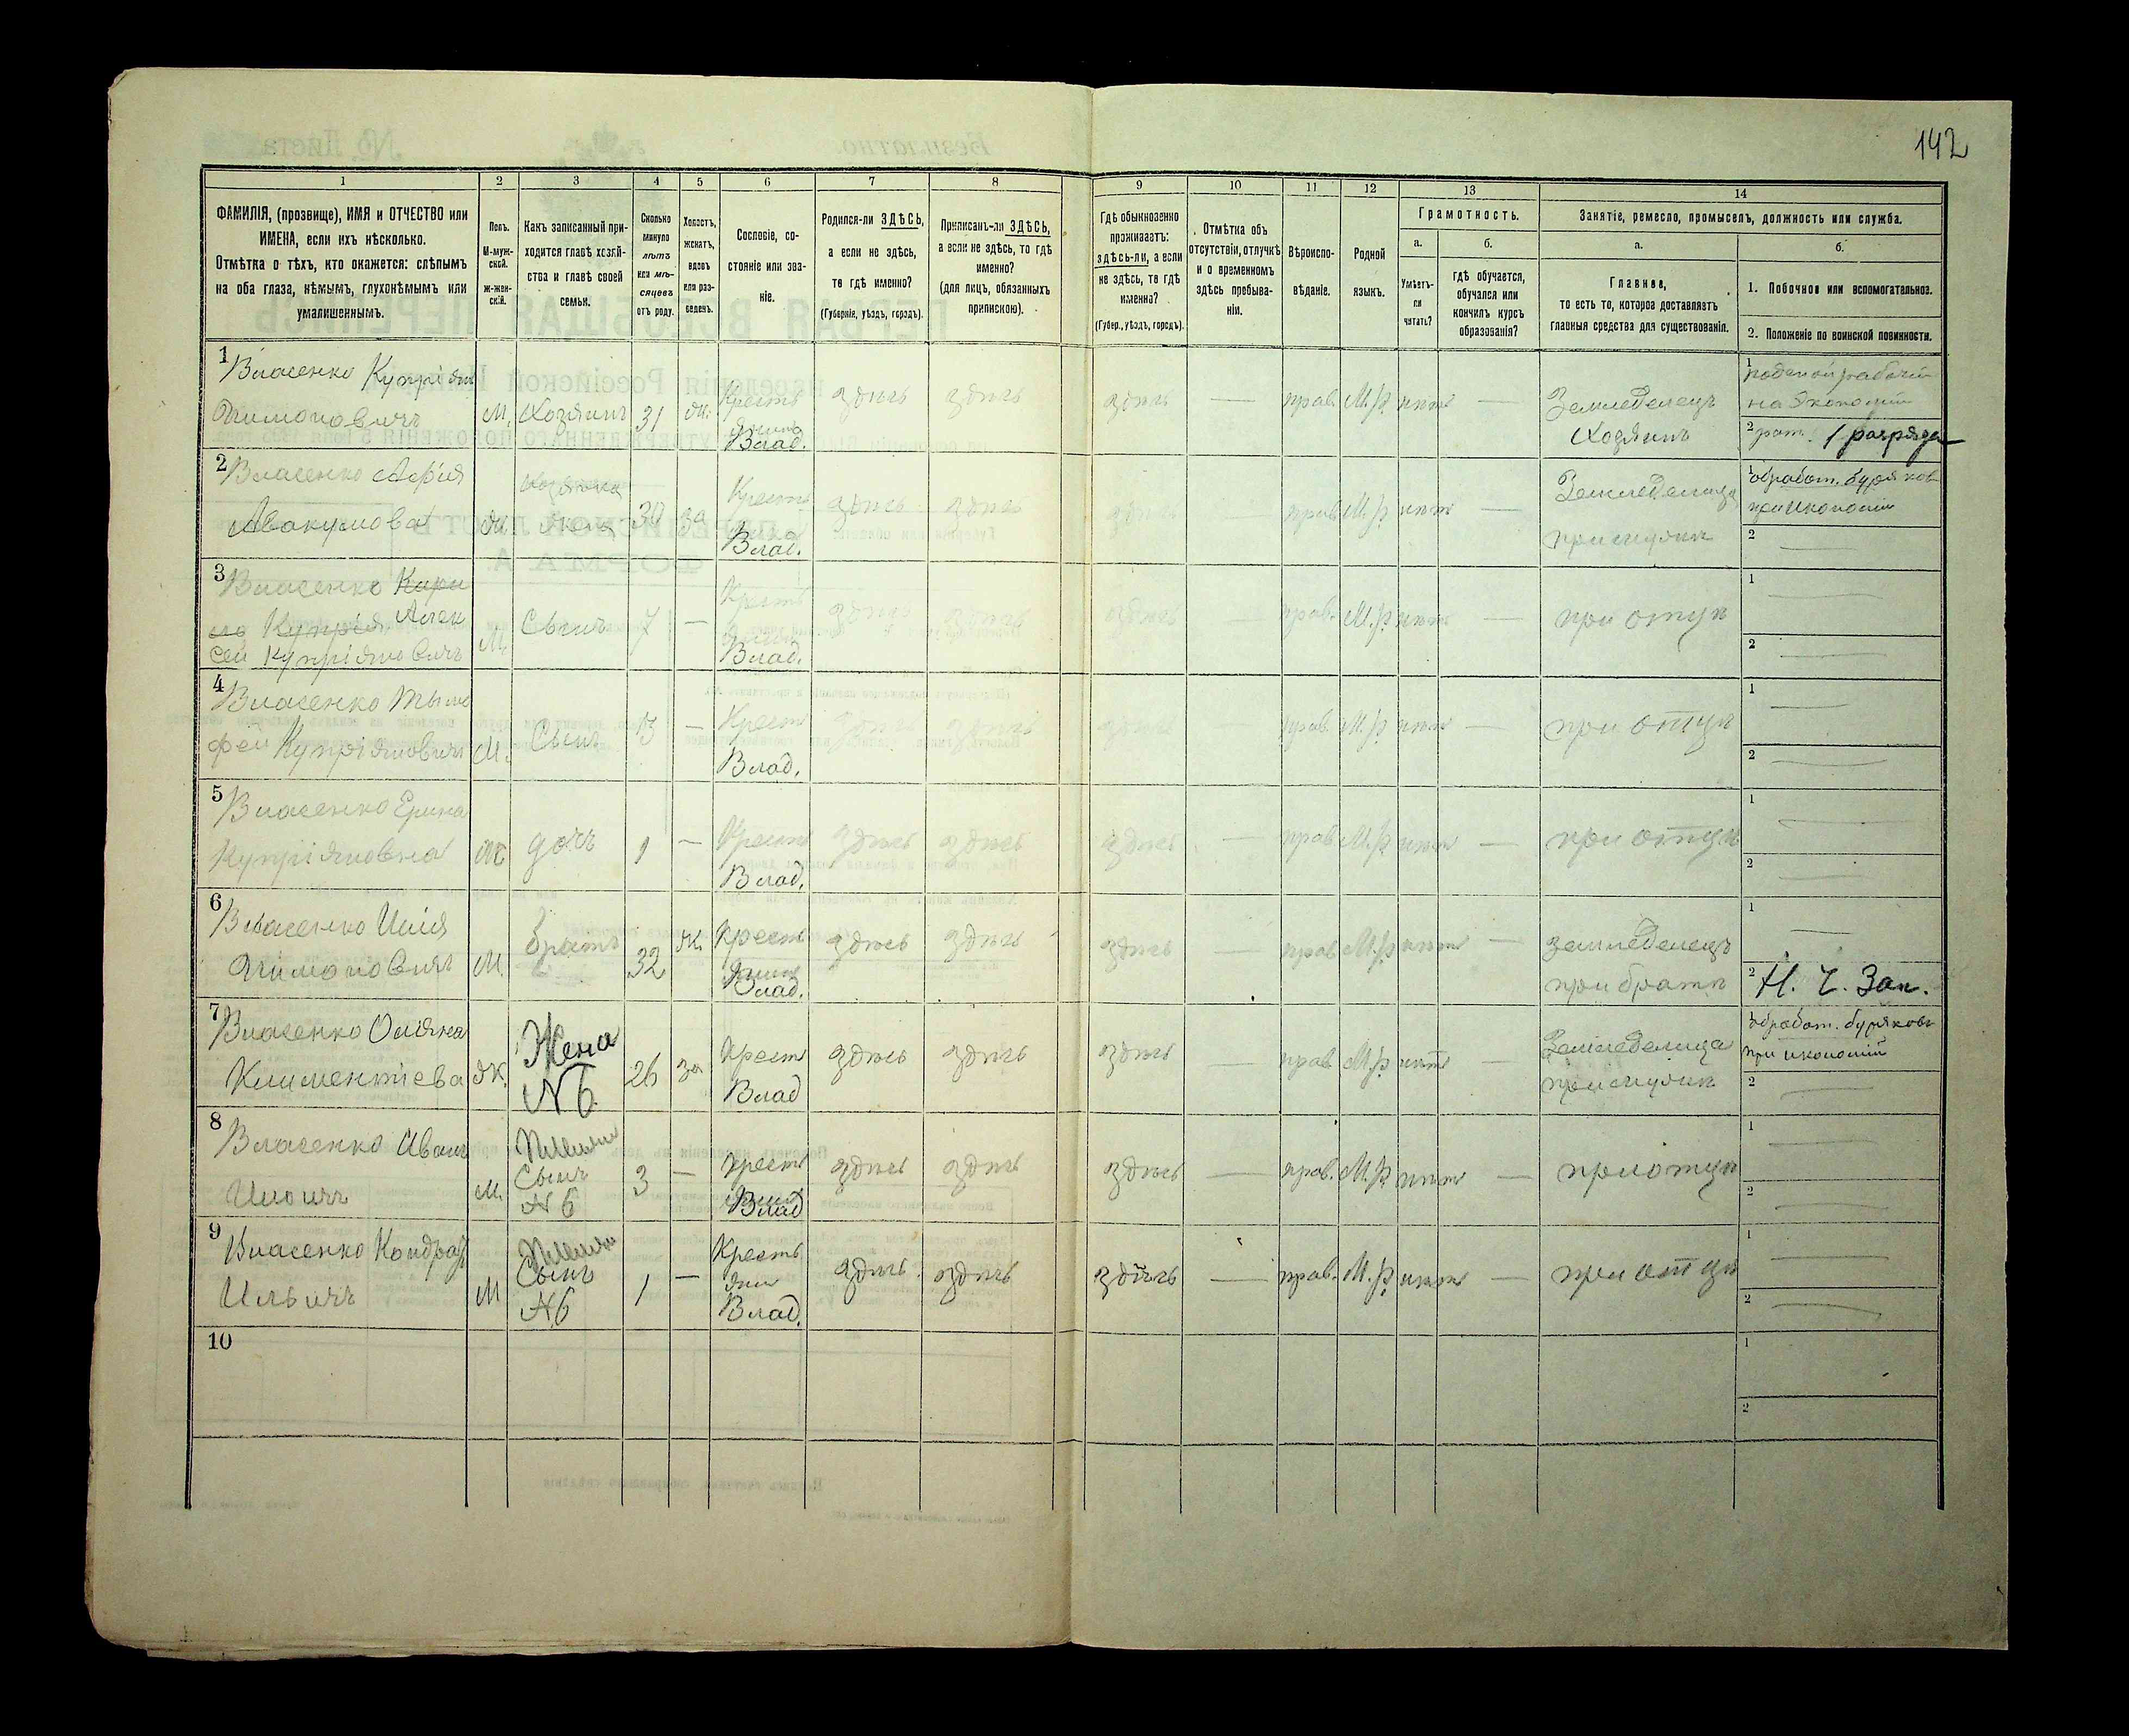 142
1 2 3 4 5 6 7 8 9 10 11 12 13 14
ФАМИЛІЯ, (прозвище), ИМЯ и ОТЧЕСТВО или
ИМЕНА, если ихъ нѣсколько.
Отмѣтка о тѣхъ, кто окажется: слѣпымъ
на оба глаза, нѣмымъ, глухонѣмымъ или
умалишеннымъ.
Полъ.
М-муж-
ской.
ж-жен-
скій.
Какъ записанный при-
ходится главѣ хозяй-
ства и главѣ своей
семьи.
Сколько
минуло
лѣтъ
или мѣ-
сяцевъ
отъ роду.
Холостъ,
женатъ,
вдовъ
или раз-
веденъ.
Сословіе, со-
стояніе или зва-
ніе.
Родился-ли ЗДѢСЬ,
а если не здѣсь,
то гдѣ именно?
(Губернія, уѣздъ, городъ).
Приписанъ-ли ЗДѢСЬ,
а если не здѣсь, то гдѣ
именно?
(для лицъ, обязанныхъ
припискою).
Гдѣ обыкновенно
проживаетъ:
здѣсь-ли, а если
не здѣсь, то гдѣ
именно?
(Губер., уѣздъ, городъ).
Отмѣтка объ
отсутствіи, отлучкѣ
и о временномъ
здѣсь пребыва-
ніи.
Вѣроиспо-
вѣданіе.
Родной
языкъ.
Грамотность.
а.
Умѣетъ-
ли
читать?
б.
гдѣ обучается,
обучался или
кончилъ курсъ
образованія?
Занятіе, ремесло, промыселъ, должность или служба.
а.
Главное,
то есть то, которое доставляетъ
главныя средства для существованія.
б.
1. Побочное или вспомогательное.
2. Положеніе по воинской повинности.
1 Власенко Купріян
М. Хозяинъ 31 ж. Крестьянинъ Влад. здѣсь здѣсь здѣсь — прав. М.р. нѣтъ —
Земледелецъ
Хозяинъ
1 поденой рабочій
на Экономіи
2 рат. 1 разряда
2 Власенко
Авакумова ж. Хозяйка жена 30 за Крестьян Влад. здѣсь здѣсь здѣсь — прав. М.р. нѣтъ —
Земледелица
при мужѣ
1 обработ. буряковъ
при икономіи
2 —
3 Власенко Алек
сей Купріяновичъ М. Сынъ 7 — Крестьян Влад. здѣсь здѣсь здѣсь — прав. М.р. нѣтъ — при отцѣ
1 —
2 —
4 Власенко Тымо
фей Купріяновичъ М. Сынъ 3 — Крест Влад. здѣсь здѣсь здѣсь — прав. М.р. нѣтъ — при отцѣ
1 —
2 —
5 Власенко Ерина
Купріяновна ж дочь 1 — Крест Влад. здѣсь здѣсь здѣсь — прав. М.р. нѣтъ — при отцѣ
1 —
2 —
6 Власенко Илія
М. братъ 32 ж. Крестьян Влад. здѣсь здѣсь здѣсь — прав М.р нѣтъ —
земледелецъ
при братѣ
1 —
2 Н. Ч. Зап.
7 Власенко Оляна
Климентіева ж. Жена
N 6. 26 за Крест Влад здѣсь здѣсь здѣсь прав М.р. нѣтъ —
Земледелица
при мужѣ
1 обработ. буряковъ
при икономіи
2 —
8 Власенко Иванъ
М. Племян
Сынъ
N 6 3 — Крестьян Влад здѣсь здѣсь здѣсь — прав. М.р. нѣтъ — при отцѣ
1 —
2 —
9 Власенко Кондрат
Ильичъ М Племян
Сынъ
N 6 1 — Крестьян Влад. здѣсь здѣсь здѣсь — прав. М.р. нѣтъ — при отцѣ
1 —
2 —
10
1
2